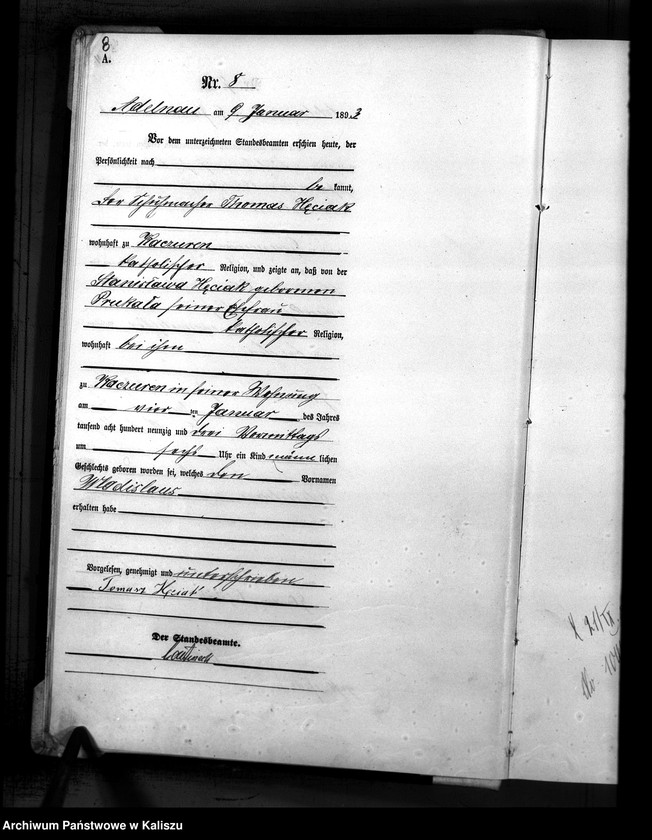 8
A.
Nr. 8
Adelnau am 9 Januar 1893
Vor dem unterzeichneten Standesbeamten erschien heute, der
Persönlichkeit nach
be kannt,
der Schuhmacher Thomas Hęciak
wohnhaft zu
katholischer Religion, und zeigte an, daß von der
Stanisława Hęciak geborenen
Prukała seiner Ehefrau
katholischer Religion,
wohnhaft bei ihm
zu in seiner Wohnung
am vier ten Januar des Jahres
tausend acht hundert neunzig und drei Vormittags
um sechs Uhr ein Kind männlichen
Geschlechts geboren worden sei, welches den Vornamen
Wladislaus
erhalten habe
Vorgelesen, genehmigt und unterschrieben
Tomasz Hęciak
Der Standesbeamte.
Archiwum Państwowe w Kaliszu